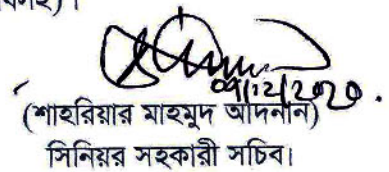 ০৭/১২/২০২০.
(শাহরিয়ার মাহমুদ আদনান)
সিনিয়র সহকারী সচিব।